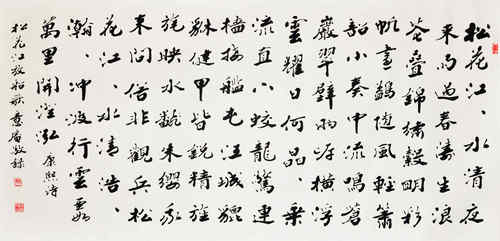 松花江、水清夜
来雨過春濤生浪
花疊錦繡縠明彩
帆畫鷁隨風輕簫
韶小奏中流鳴蒼
巖翠壁兩岸橫浮
雲耀日何晶、乘
流直下蛟龍驚連
檣接艦屯江城貔
貅健甲皆銳精旌
旄映水翻朱纓我
来問俗非觀兵松
花江、水清浩、
瀚、沖波行雲霞
萬里開澄泓 康熙詩
松花江放船歌 敬錄